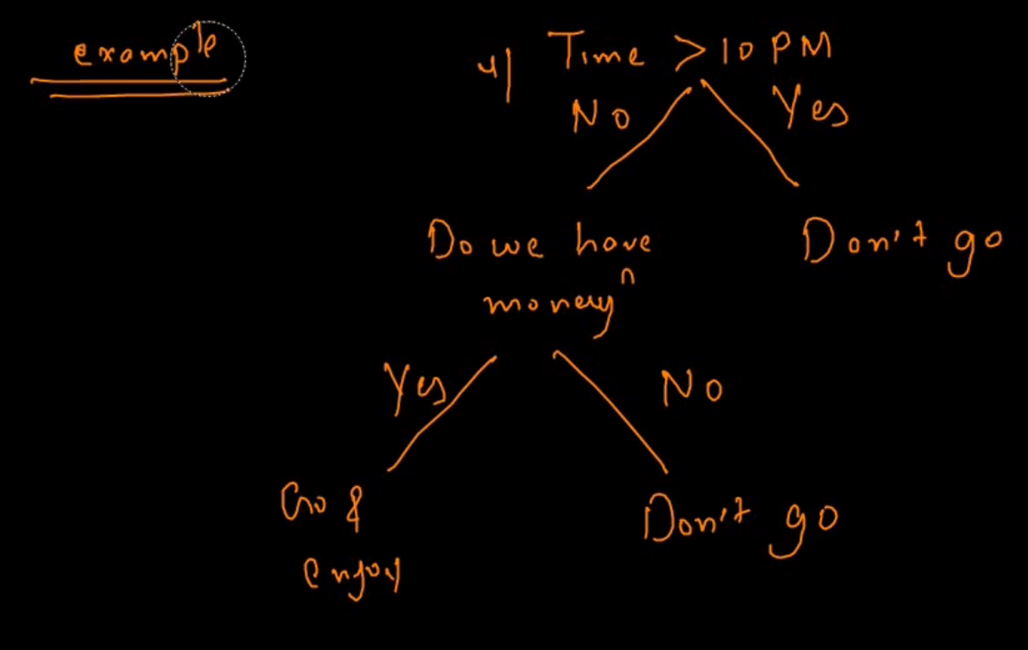 example
Time > 10 PM
No
Yes
Do we have
money
Don't go
Yes
No
Go &
enjoy
Don't go